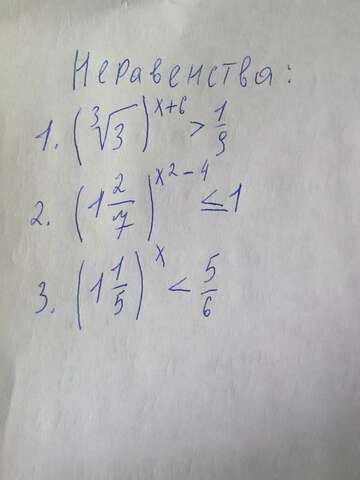 Неравенства:
1. (∛3)^(x+6) > 1/9
2. (1 2/7)^(x²-4) ≤ 1
3. (1 1/5)^x < 5/6